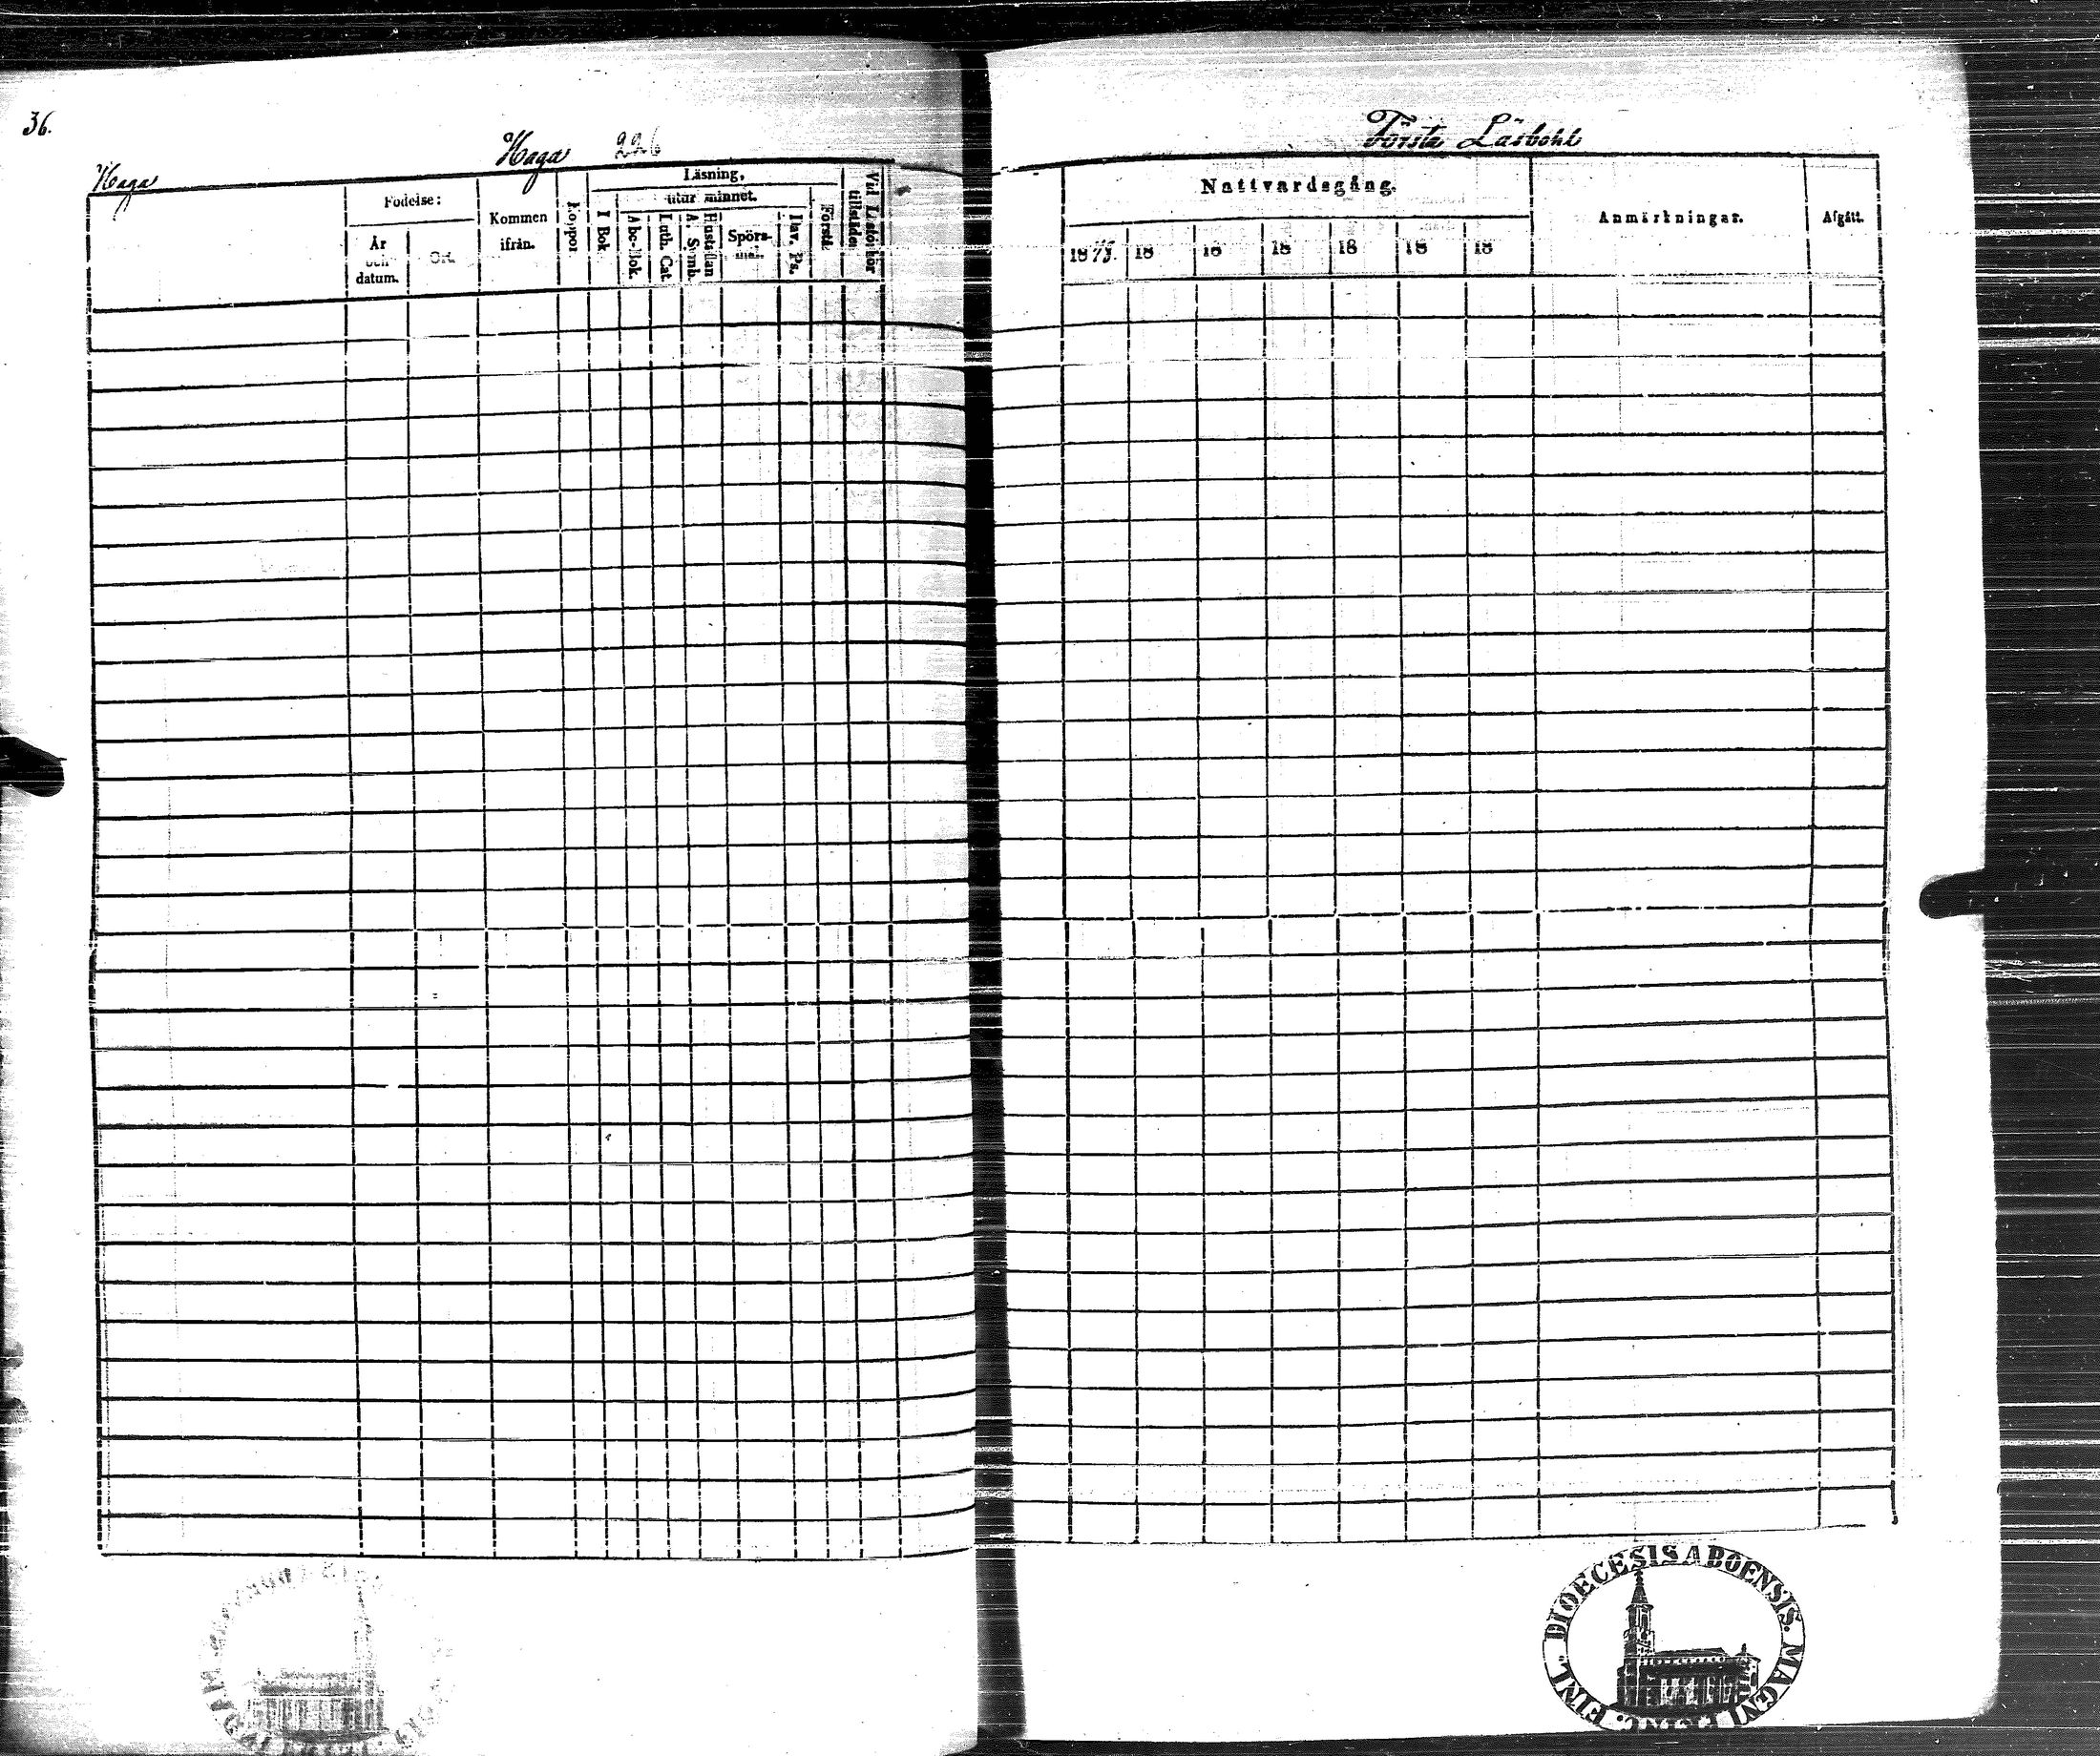 36.
Haga 226
Haga
Födelse:
År
och
datum.
Ort.
Kommen
ifrån.
Koppor.
Läsning,
utur minnet.
I Bok.
Abc-Bok.
Luth. Cat.
Hustaflan
A. Symb.
Spörs-
mål.
Dav. Ps.
Förstår.
Vid Läsförhör
tillstädes
Första Läsbohl
Nattvardsgång.
18 18 18 18 18 18 18
Anmärkningar.
Afgått.
DIOECESIS ABOENSIS. MAGNI FINL.